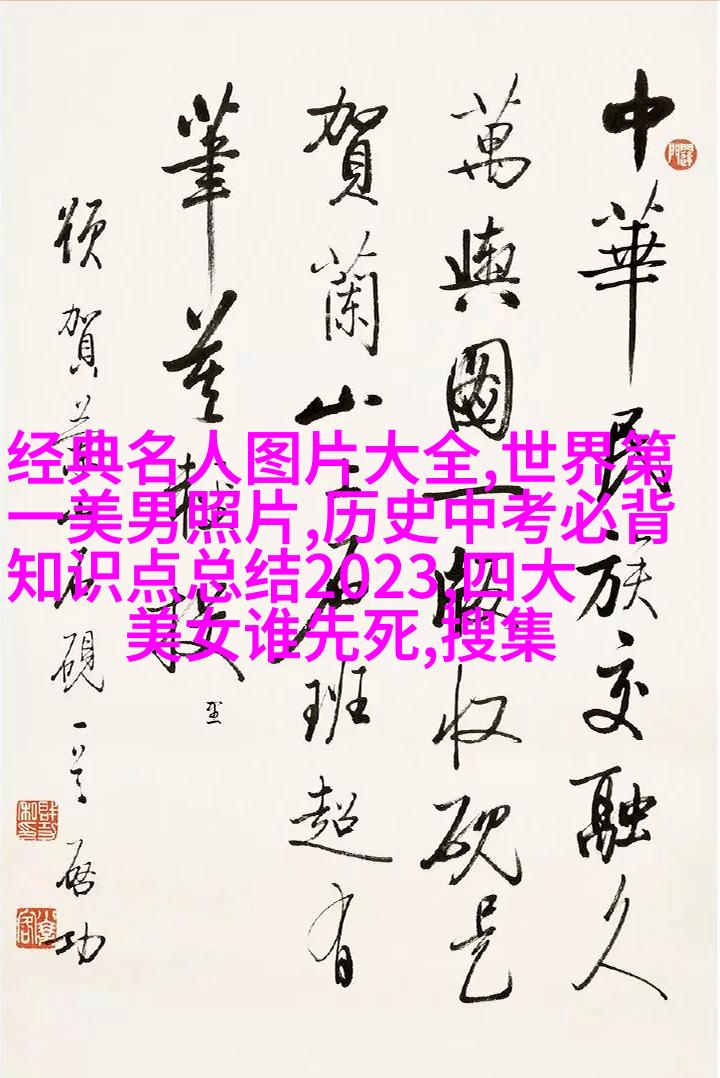 中華民族交融久
萬輿圖一版收硯是
賀蘭山上石班超有
筆莫輕投 里
賀蘭石硯一首 啟功
经典名人图片大全,世界第
一美男照片,历史中考必背
知识点总结2023,四大
美女谁先死,搜集